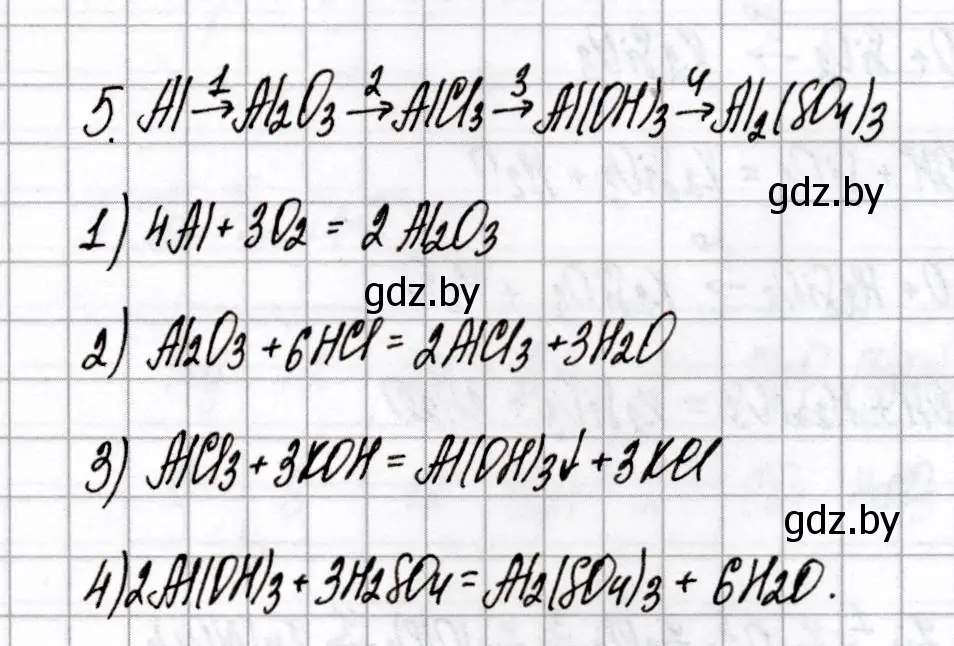 5. Al →¹ Al₂O₃ →² AlCl₃ →³ Al(OH)₃ →⁴ Al₂(SO₄)₃
gdz.by
1) 4Al + 3O₂ = 2Al₂O₃
gdz.by
2) Al₂O₃ + 6HCl = 2AlCl₃ + 3H₂O
3) AlCl₃ + 3KOH = Al(OH)₃↓ + 3KCl
gdz.by
4) 2Al(OH)₃ + 3H₂SO₄ = Al₂(SO₄)₃ + 6H₂O.